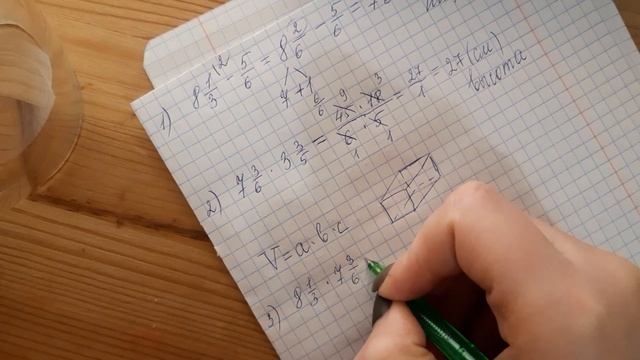 1) 8 1/3 ^2 - 5/6 = 8 2/6 - 5/6 = 7
7 + 1
6/6
2) 7 3/6 · 3 3/5 = 45 · 18 / 6 · 5 = 27/1 = 27 (см)
9 3
1 1
высота
V = a · b · c
3) 8 1/3 · 7 3/6